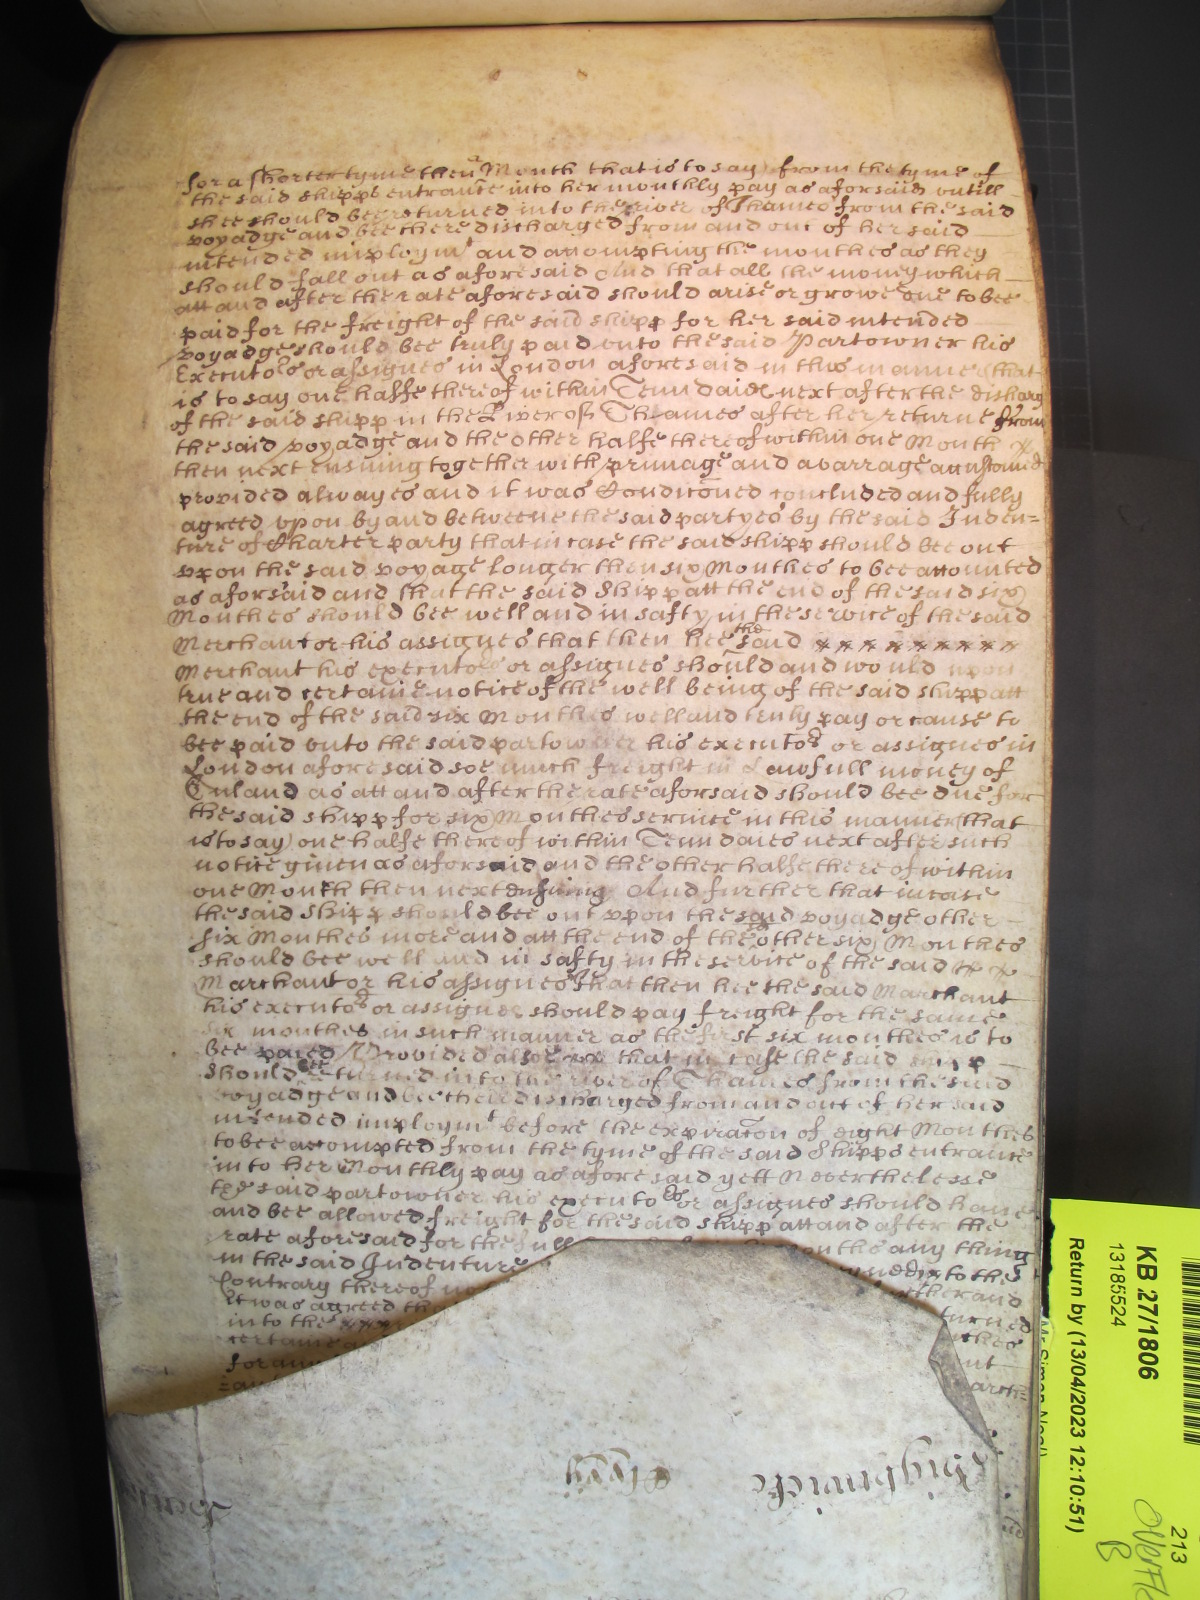 for a shorter tyme then a Month that is to say from the tyme of
the said shipps entrance into her monthly pay as aforsaid untill
shee should bee returned into the river of Thames from the said
voyadge and bee there discharged from and out of her said
intended imploymt and accompting the monthes as they
should fall out as aforesaid And that all the money which
att and after the rate aforesaid should arise or growe due to bee
paid for the freight of the said shipp for her said intended
voyadge should bee truly paid unto the said Partowner his
Executors or assignes in London aforesaid in this manner (that
is to say one halfe thereof within Tenn daies next after the discharg
of the said shipp in the River of Thames after her returne from
the said voyadge and the other halfe thereof within one Month
then next ensuing together with primage and avarrage accustomed
provided alwayes and it was Condiconed concluded and fully
agreed upon by and betweene the said partyes by the said Inden=
ture of Charter party that in case the said shipp should bee out
vpon the said voyage longer then six Monthes to bee accounted
as aforsaid and that the said Shipp att the end of the said six
Monthes should bee well and in safty in the service of the said
Merchant or his assignes that then hee the said
Merchant his executors or assignes should and would upon
true and certaine notice of the well being of the said shipp att
the end of the said six Monthes well and truly pay or cause to
bee paid unto the said partowner his executors or assignes in
London aforesaid soe much freight in Lawfull money of
England as att and after the rate aforsaid should bee due for
the said shipp for six Monthes service in this manner (that
is to say) one halfe thereof within Tenn daies next after such
notice given as aforsaid and the other halfe thereof within
one Month then next ensuing And further that in case
the said Shipp should bee out vpon the said voyadge other
six Monthes more and att the end of the other six Monthes
should bee well and in safty in the service of the said
Marchant or his assignes That then hee the said Marchant
his executors or assignes should pay freight for the same
six monthes in such manner as the first six monthes is to
bee paied Provided alsoe that in case the said shipp
should bee returned into the river of Thames from the said
voyadge and bee there discharged from and out of her said
intended imploymt before the expiracon of eight Monthes
to bee accompted from the tyme of the said Shipps entrance
into her Monthly pay as aforesaid yett Neverthelesse
the said partowner his executors or assignes should have
and bee allowed freight for the said shipp att and after the
rate aforesaid for the full onths any thing
in the said Indenture to the
Contrary thereof and
It was agreed turned
into the
certaine
for any
KB 27/1806
13185524
Return by (13/04/2023 12:10:51)
213